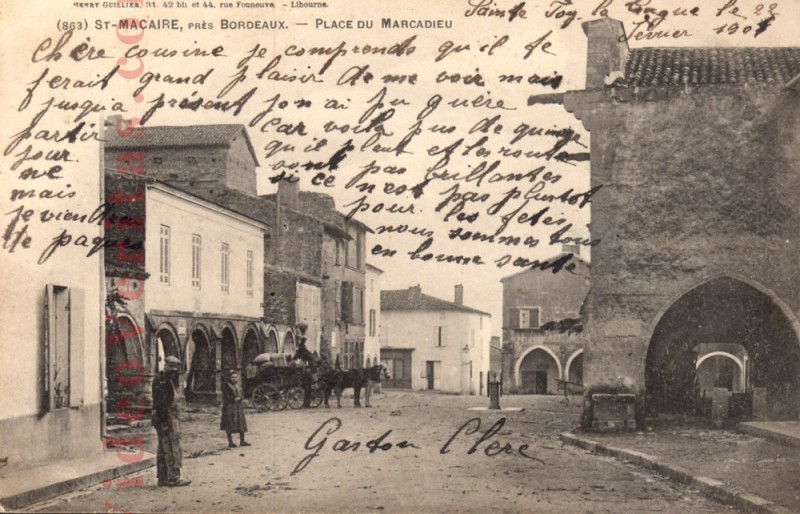 HENRY GUILLIER, 31. 42 bis et 44, rue Fonneuve. - Libourne.
(863) ST-MACAIRE, PRÈS BORDEAUX. — PLACE DU MARCADIEU
Sainte Foy la Longue le 22
février 190
Chère cousine je comprends qu'il te
ferait grand plaisir de me voir mais
jusqu'a présent jen ai pu guère
partir car voila pus de quinze
jour qu'il pleut et les route
ne sont pas brillantes
mais si ce n'est pas plustot
je viendrai pour les fêtes
de paques nous sommes tous
en bonne sante
Gaston Clerc